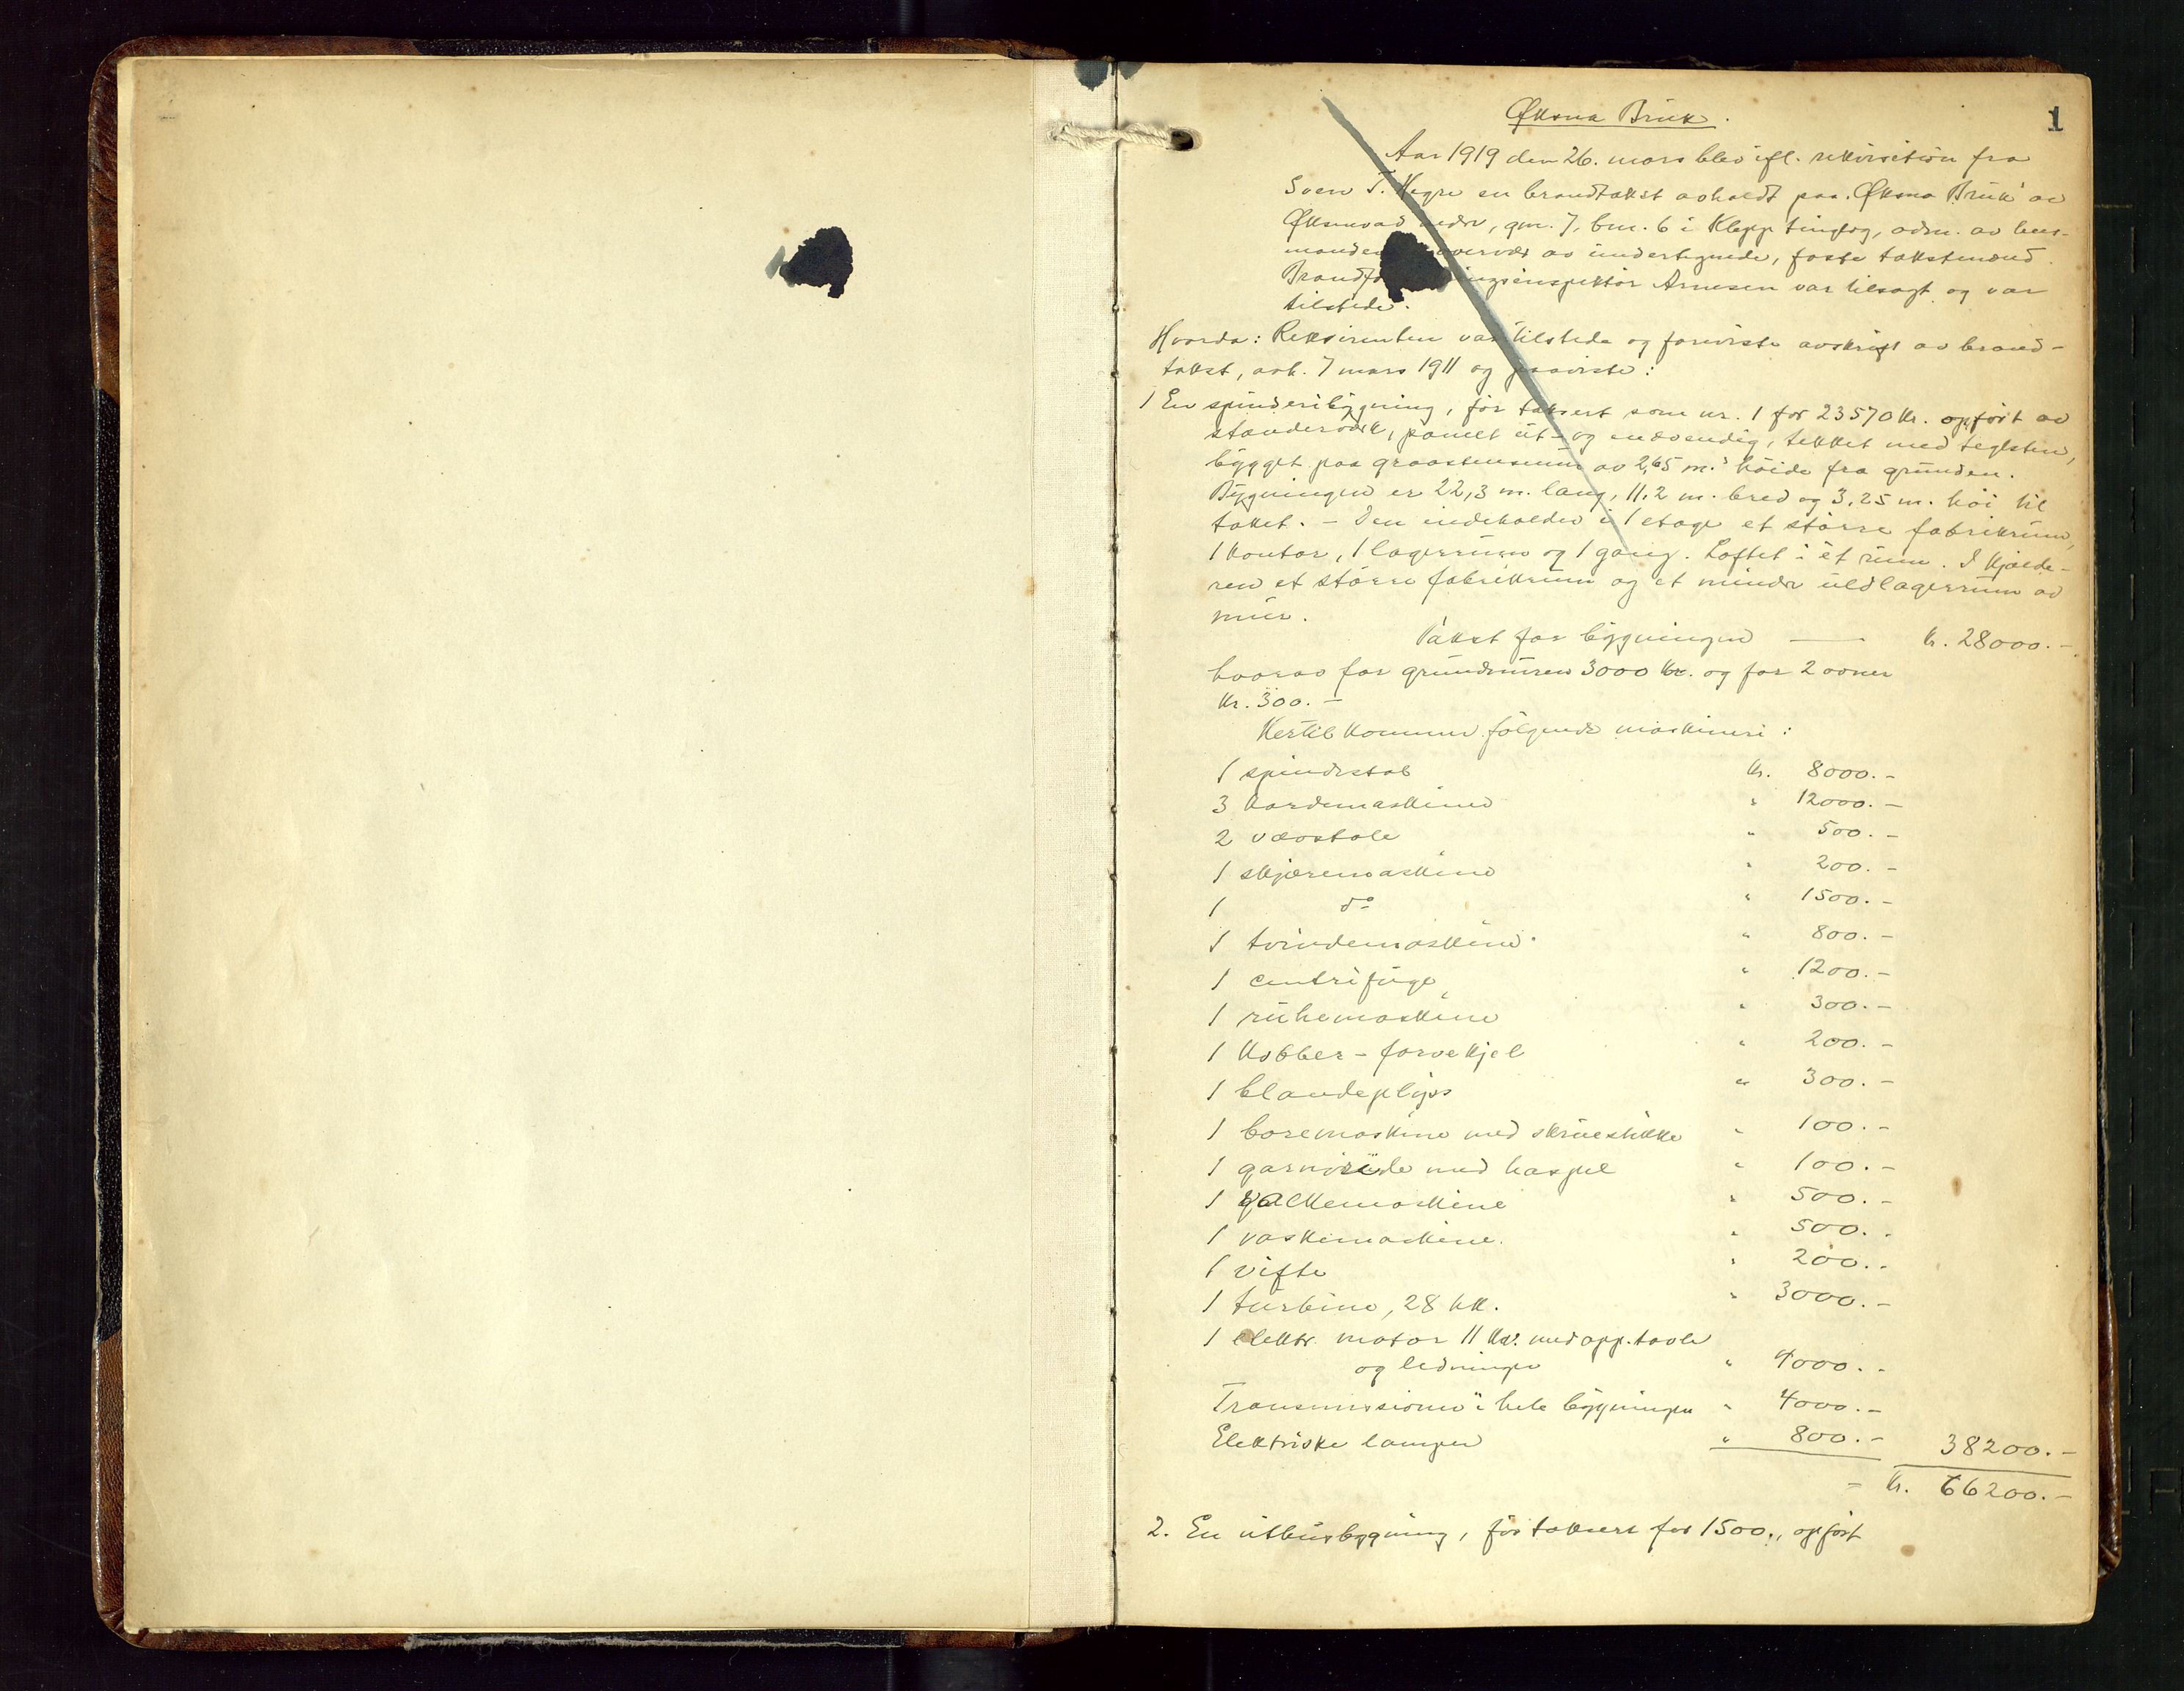 1
Øksna Bruk.
Aar 1919 den 26. mars blev ifl. rekvisition fra
Sven T. Hegre en brandtakst avholdt paa "Øksna Bruk" av
Øksnevad nedr, gnr. 7, bnr. 6 i Klepp tinglag, adm. av lens-
manden overvær av undertegnede, faste takstmænd.
Brandfo ingsinspektör Arnesen var tilsagt og var
tilstede.
Hvorda: Rekvirenten var tilstede og foreviste avskrift av brand-
takst, avh. 7 mars 1911 og paaviste:
1 En spinderibygning, för taksert som nr. 1 for 23570 Kr. opfört av
standerverk, panelt ut- og indvendig, tekket med teglsten,
bygget paa graastensmur av 2,65 m.s höide fra grunden.
Bygningen er 22,3 m. lang, 11,2 m. bred og 3,25 m. höi til
taket. - Den indeholder i 1 etage et större fabrikrum,
1 kontor, 1 lagerrum og 1 gang. Loftet i ét rum. I kjælde-
ren et större fabrikrum og et mindre uldlagerrum av
mur.
Takst for bygningen — Kr. 28000.-
hvorav for grundmuren 3000 Kr. og for 2 ovner
Kr. 300.-
Hertil kommer følgende maskineri:
1 spindestol Kr. 8000.-
3 kardemaskiner " 12000.-
2 vævstole " 500.-
1 skjæremaskine " 200.-
1 do " 1500.-
1 tvindemaskine " 800.-
1 centrifuge " 1200.-
1 ruhemaskine " 300.-
1 Kobber-farvekjel " 200.-
1 blandepliyss " 300.-
1 boremaskine med skruestikke " 100.-
1 garnvinde med haspel " 100.-
1 valkemaskine " 500.-
1 vaskemaskine. " 500.-
1 vifte " 200.-
1 turbine, 28 hk. " 3000.-
1 elektr. motor 11 Kw. med app.tavle
og ledninger " 4000.-
Transmissioner i hele bygningen " 4000.-
Elektriske lamper " 800.- 38200.-
- Kr. 66200.-
2. En uthusbygning, för taksert for 1500., opfört